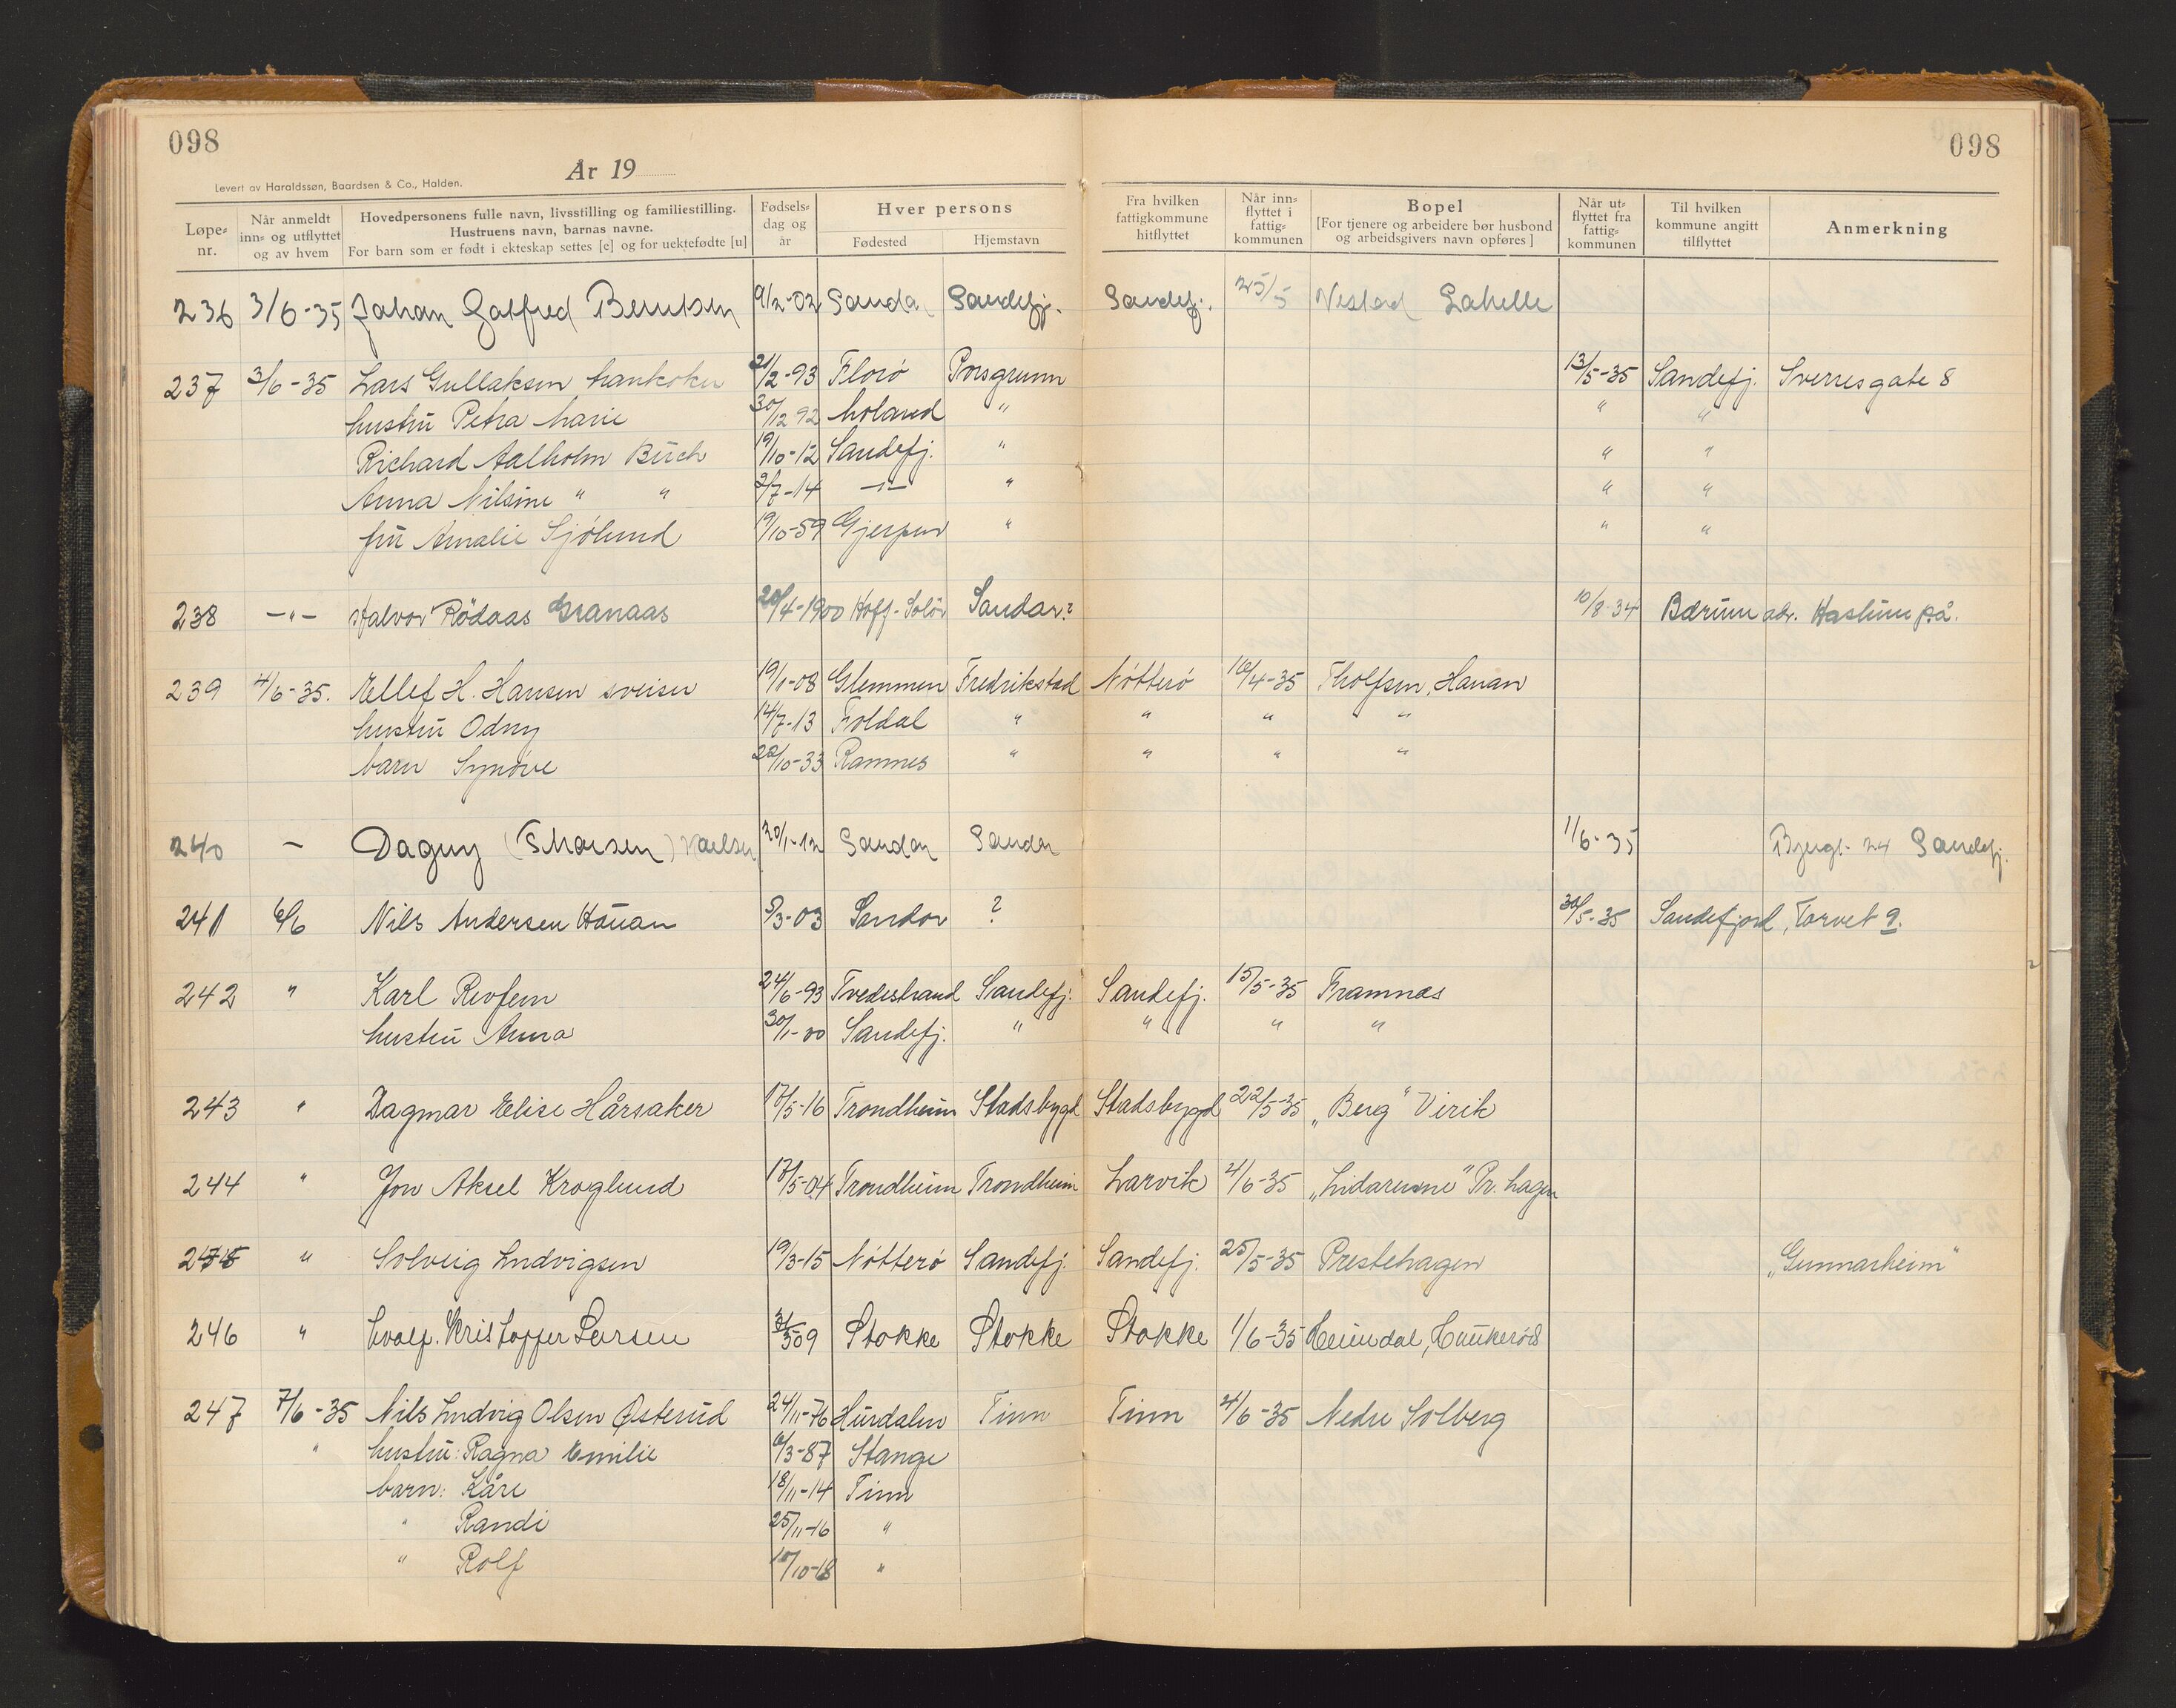 098
098
År 19
Levert av Haraldssøn, Baardsen & Co., Halden.
Løpe-nr.
Når anmeldt inn- og utflyttet og av hvem
Hovedpersonens fulle navn, livsstilling og familiestilling.
Hustruens navn, barnas navne.
For barn som er født i ekteskap settes [e] og for uektefødte [u]
Fødsels-dag og år
Hver persons
Fødested
Hjemstavn
Fra hvilken fattigkommune hitflyttet
Når inn-flyttet i fattig-kommunen
Bopel
[For tjenere og arbeidere bør husbond og arbeidsgivers navn opføres]
Når ut-flyttet fra fattig-kommunen
Til hvilken kommune angitt tilflyttet
Anmerkning
236 3/6-35 Johan Gotfred Berntsen 9/2-02 Sandar Sandefj. Sandefj. 25/5 Nestad
237 3/6-35 Lars Gullaksen 21/2-93 Florö Porsgrunn 13/5-35 Sandefj. Sverresgate 8
hustrü Petra Marie 30/12 92 " " "
Richard Aalholm Bürch 19/10-12 Sandefj. " " "
Anna Nilsine " " 2/7-14 -"- " " "
frü Amalie Sjölund 19/10-59 Gjerpen " " "
238 -"- Halvor Rödaas Granaas 20/4-1900 Hoff-Solör Sandar? 10/8-34 Bærum adr. Haslum på.
239 4/6-35. Ellef H. Hansen sveiser 19/1-08 Glemmen Fredrikstad Nötterö 10/4-35 Tholfsen, Hauan
hustrü Odny 14/7-13 Foldal " " " "
barn Synöve 28/10-33 Ramnes " " " "
240 - Dagny (Thorsen) 20/1-12 Sandar Sandar 1/6-35 Bjergt. 24 Sandefj.
241 6/6 Nils Andersen Haüan 5/3-03 Sandar ? 30/5-35 Sandefjord, Torvet 9.
242 " Karl Revfem 24/6-93 Tvedestrand Sandefj. Sandefj. 15/5-35 Framnæs
hustrü Anna 30/1-00 Sandefj. " " " "
243 " Dagmar Elise Hårsaker 17/5-16 Trondheim Stadsbygd Stadsbygd 22/5-35 „Berg" Virik
244 " Jon Aksel Kroglund 17/5-04 Trondheim Trondheim Larvik 4/6-35 „Lidarenne" Pr. hagen
245 " Solveig Ludvigsen 19/3-15 Nötterö Sandefj. Sandefj. 25/5-35 Prestehagen „Gunnarheim"
246 " Kristoffer Larsen 09 Stokke Stokke Stokke 1/6-35 Heimdal, Haukeröd
247 7/6-35 Nils Ludvig Olsen Østerüd 24/11-76 Hurdalen Tinn Tinn 4/6-35 Nedre Solberg
" hustrü: Ragna Emilie 6/3-87 Stange
barn: Kåre 18/11-14 Tinn
" Randi 25/11-16 "
" Rolf 10/10-18 "